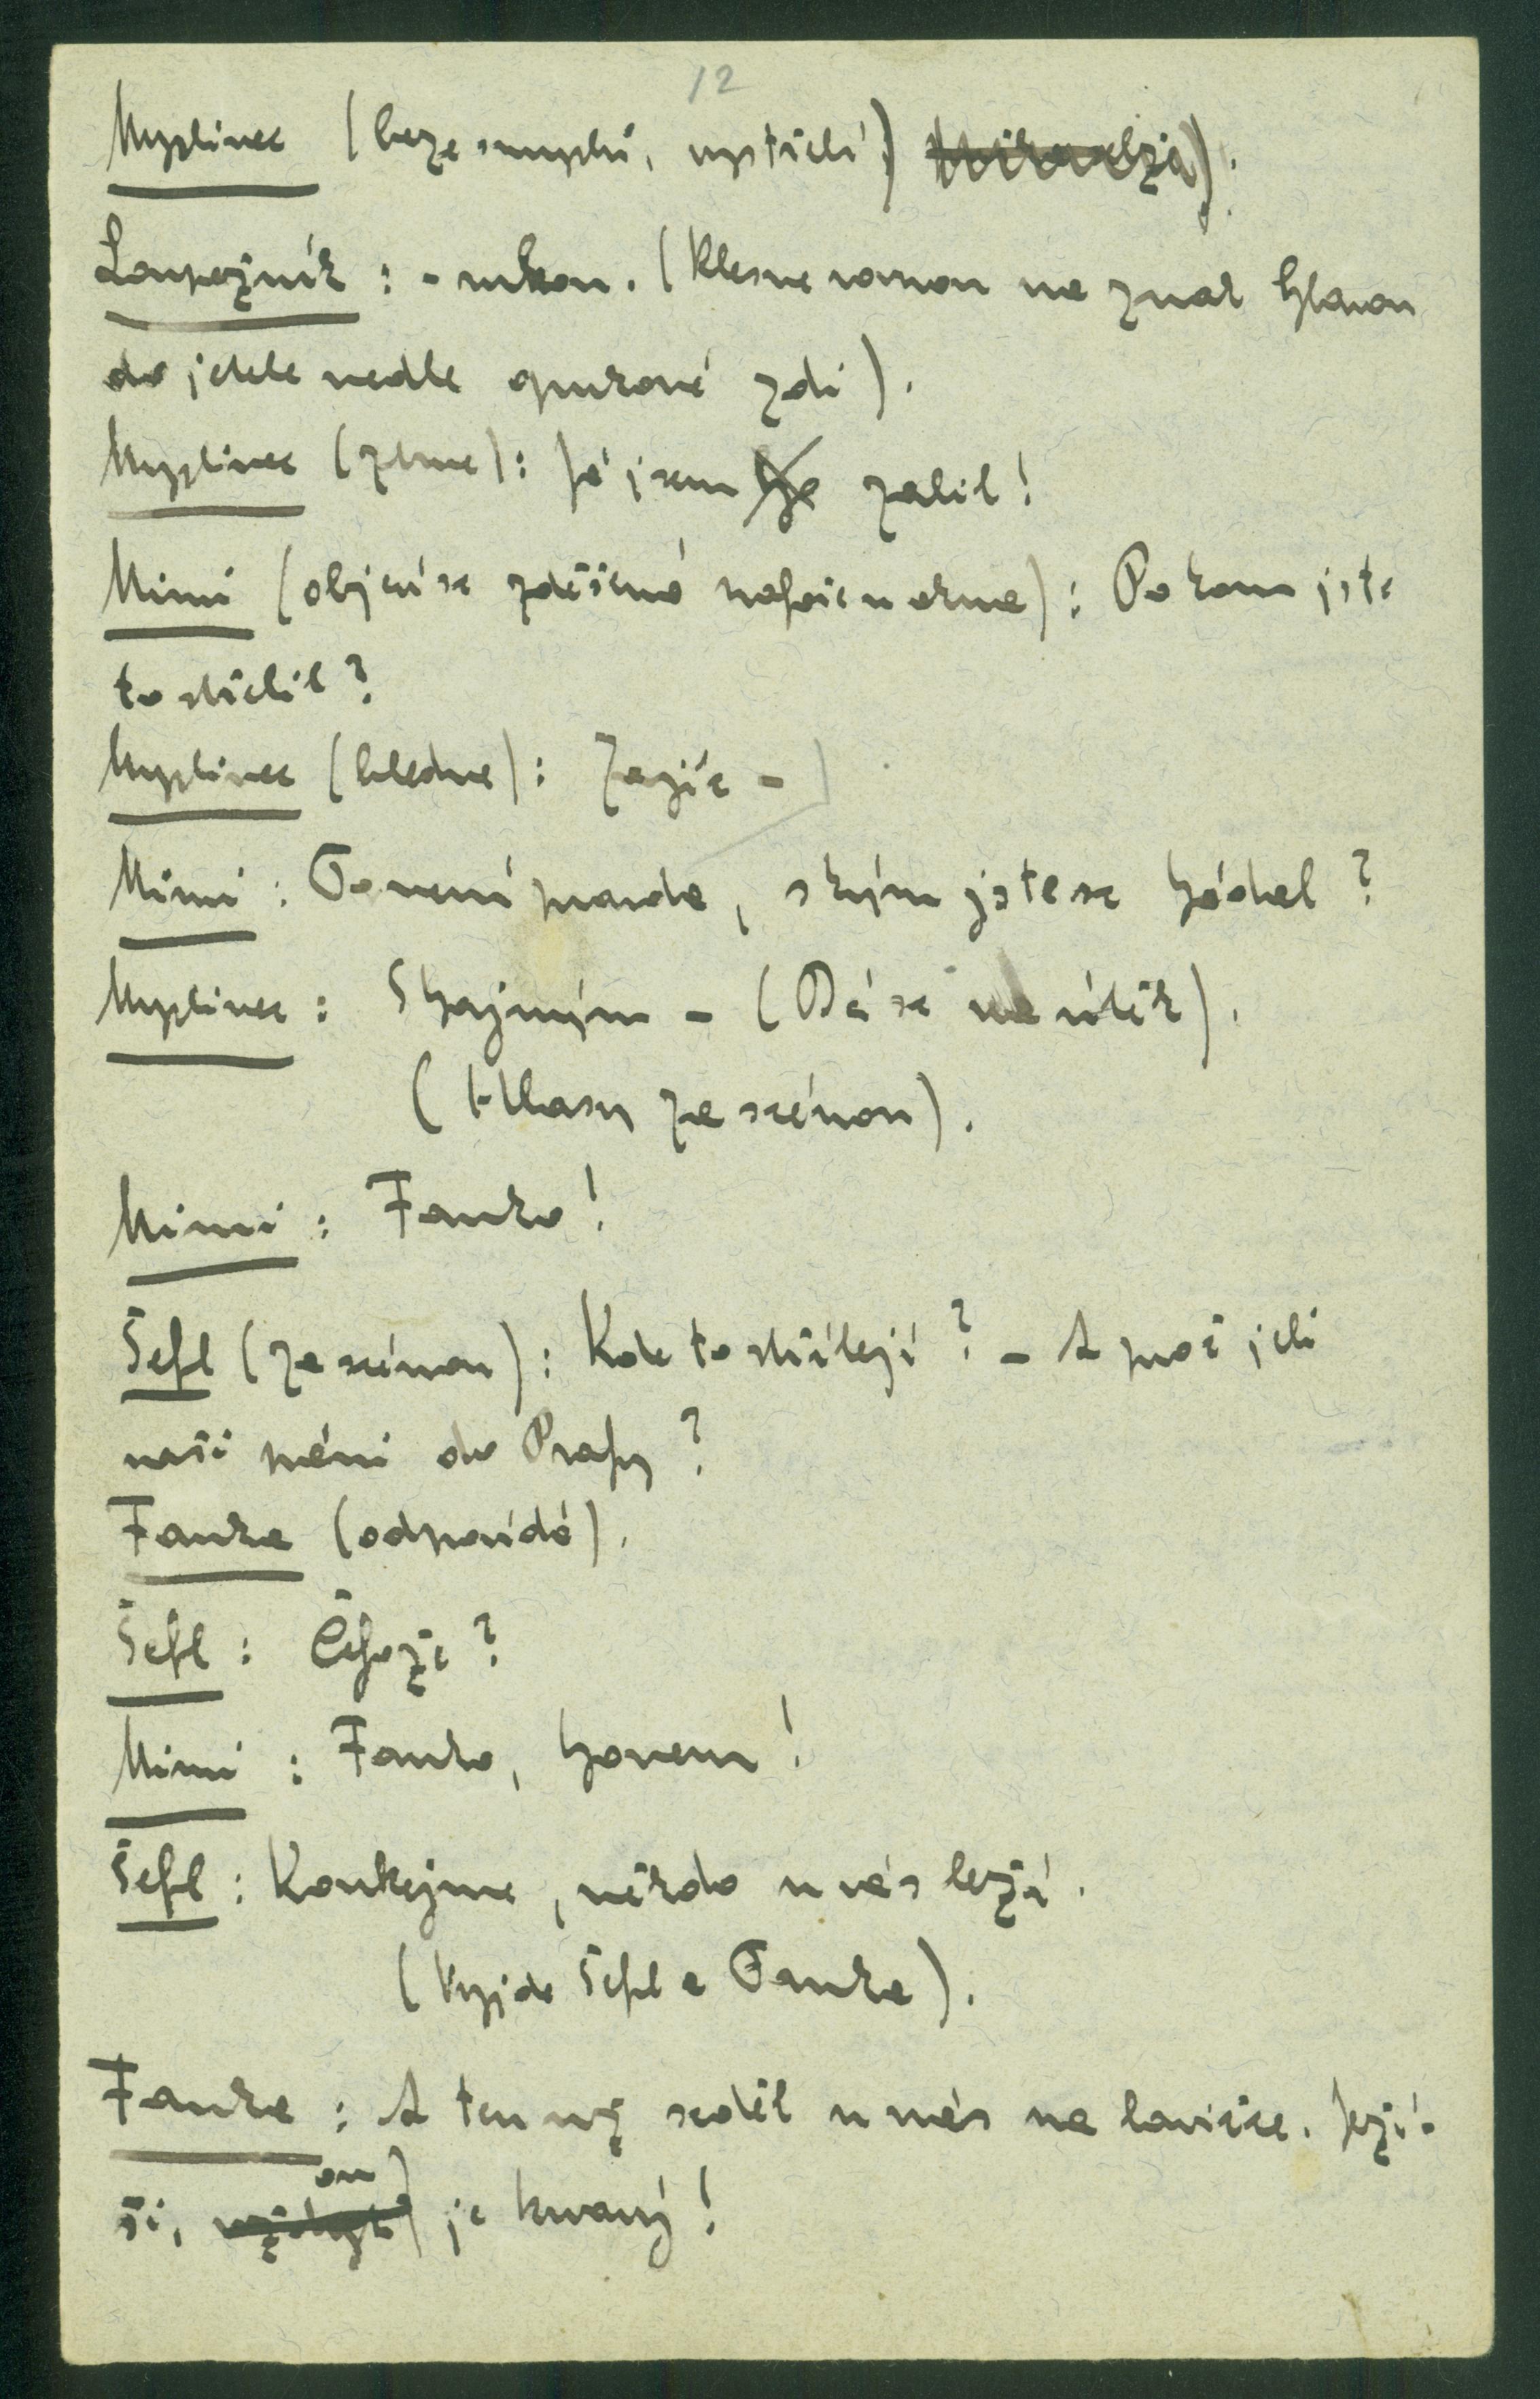 12
Myslivec (beze smyslů, vystřelí)
Loupežník: - rukou. (Klesne rovnou na znak hlavou
do jetele vedle opukové zdi).
Myslivec (žasne): Já jsem ho zabil!
Mimi (objeví se zděšená nahoře v okně): Po kom jste
to střelil?
Myslivec (bledne): Zajíc -
Mimi: To není pravda, s kým jste se hádal?
Myslivec: S hajným - (Dá se na útěk).
(Hlasy za scénou).
Mimi: Fanko!
Šefl (za scénou): Kde to střílejí? - A proč jeli
naši páni do Prahy?
Fanka (odpovídá).
Šefl: Čehože?
Mimi: Fanko, honem!
Šefl: Koukejme, někdo u vás leží.
(Vyjde Šefl a Fanka).
Fanka: A ten už seděl u nás na lavičce. Ježí-
ši, vždyť on je krvavý!